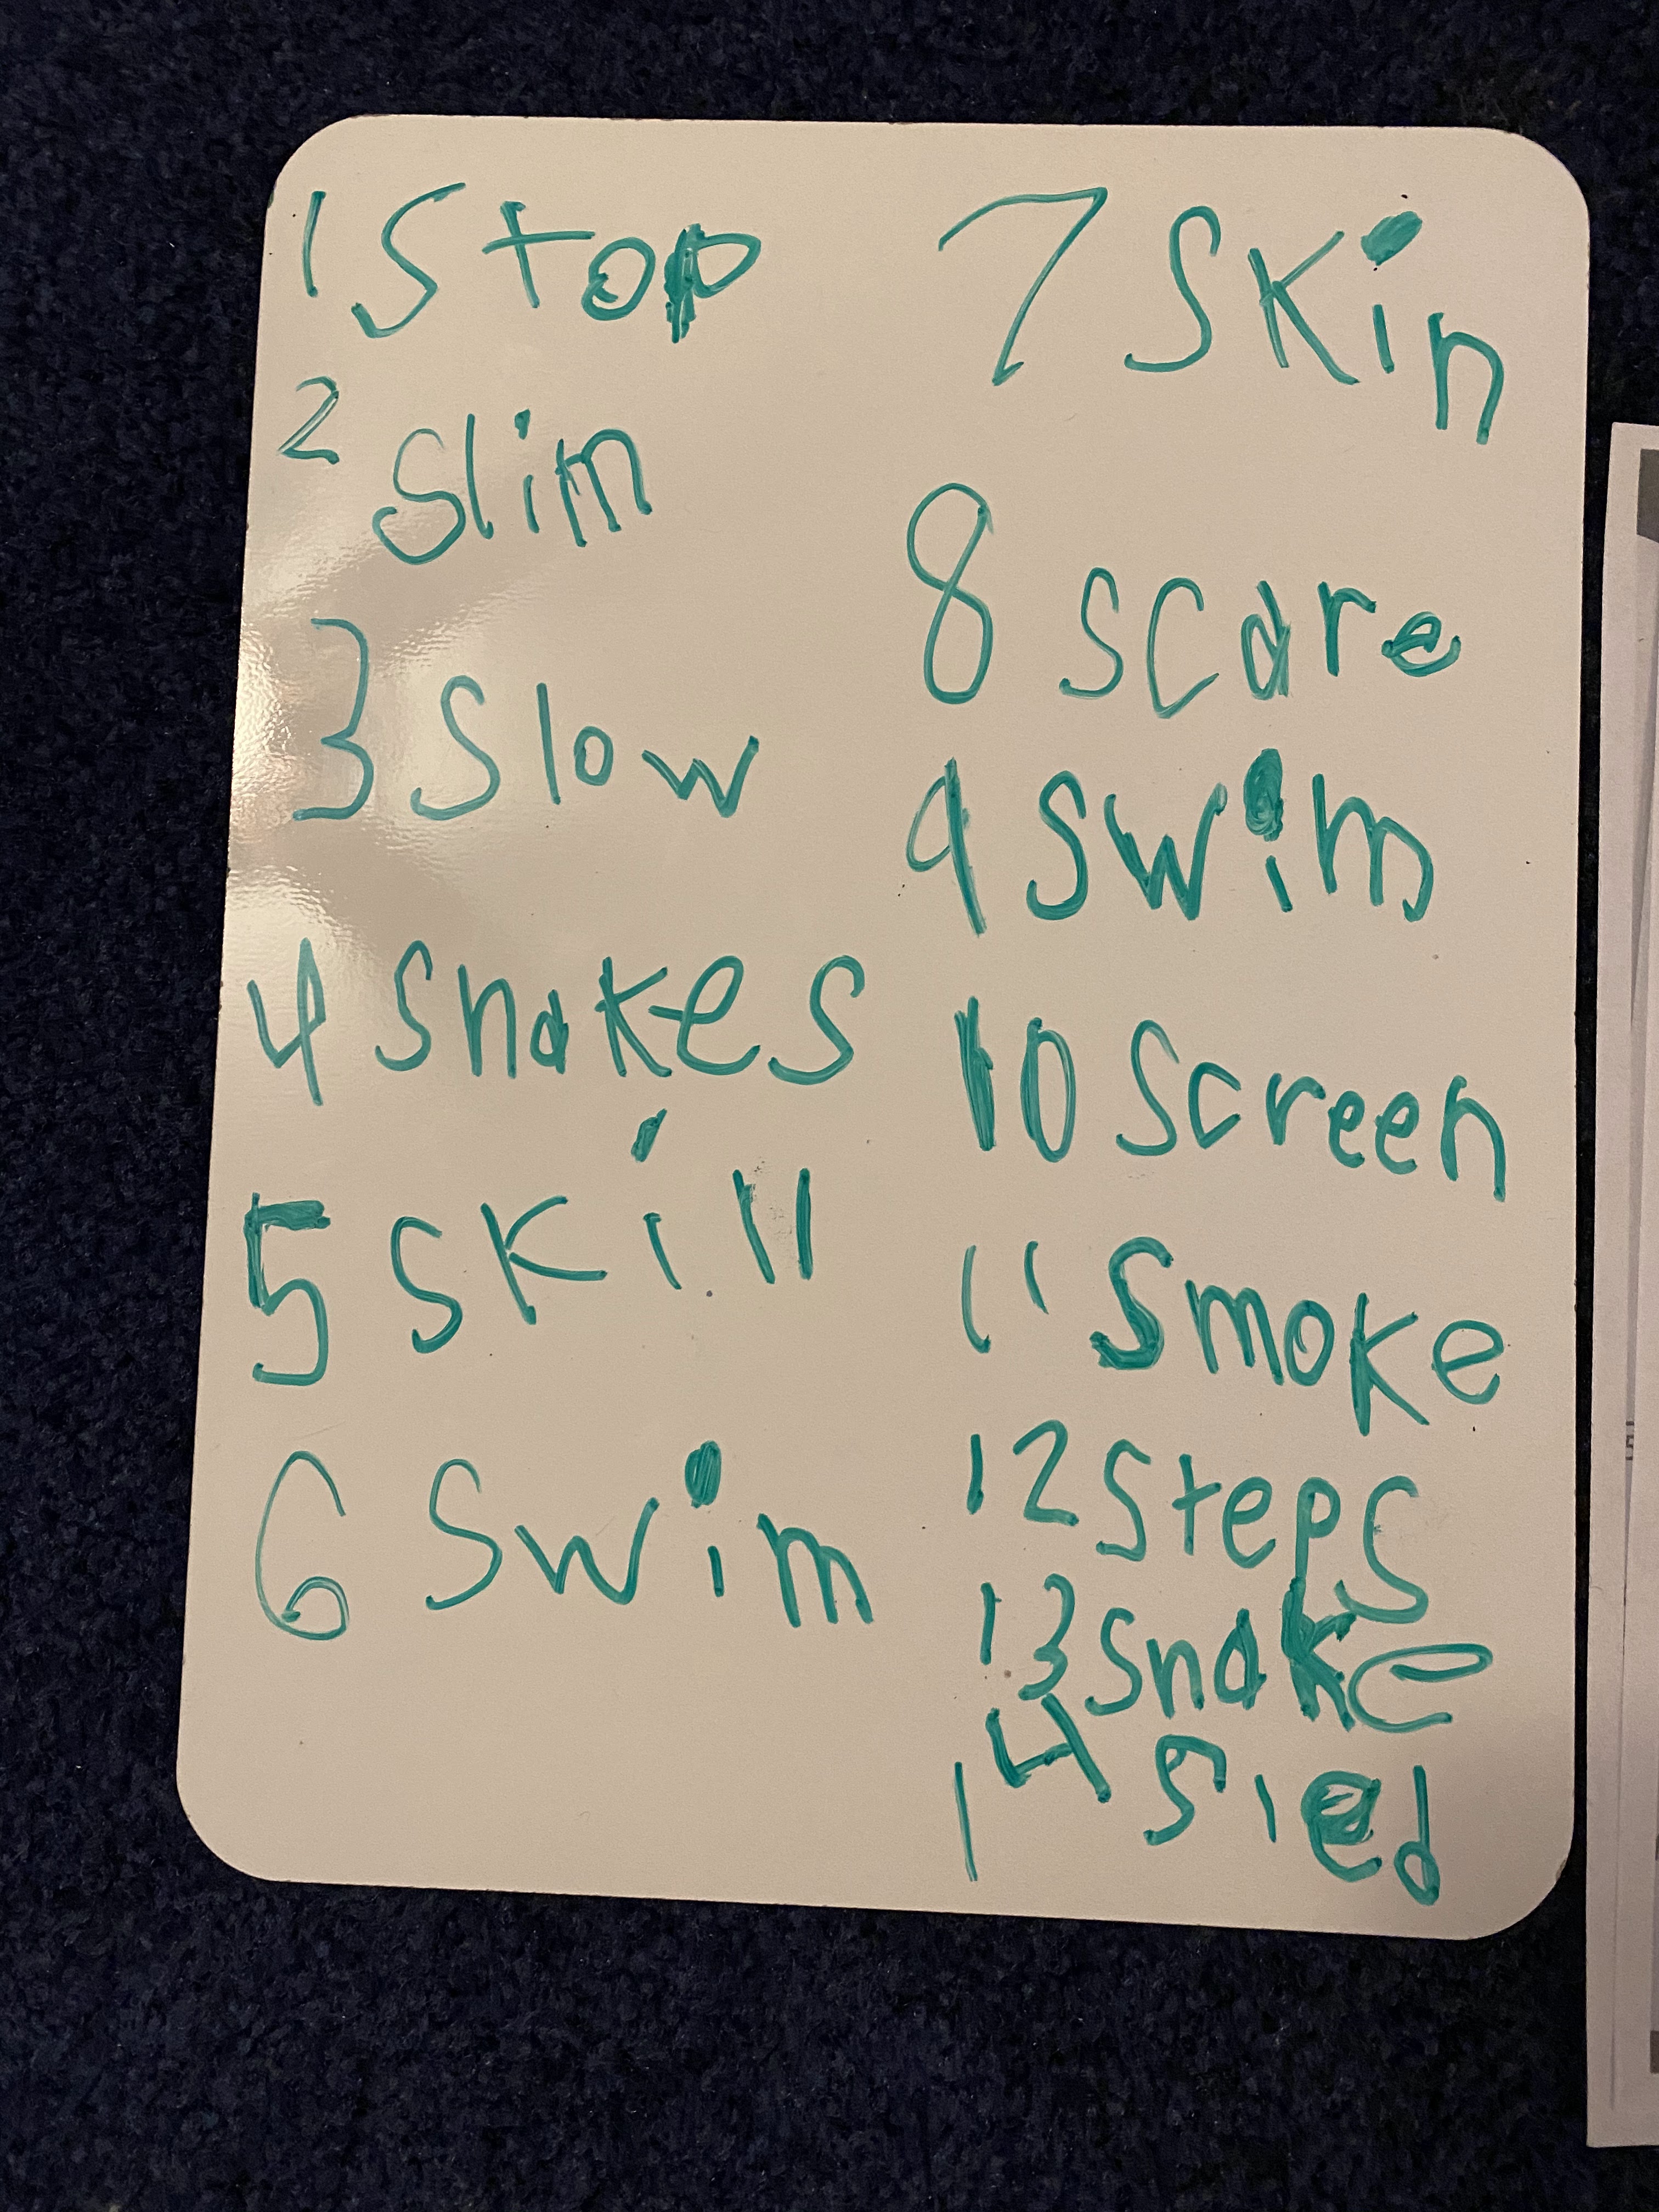 1 Stop
2 Slim
3 Slow
4 Snakes
5 Skill
6 Swim
7 Skin
8 Scare
9 Swim
10 Screen
11 Smoke
12 Steps
13 Snake
14 Sled